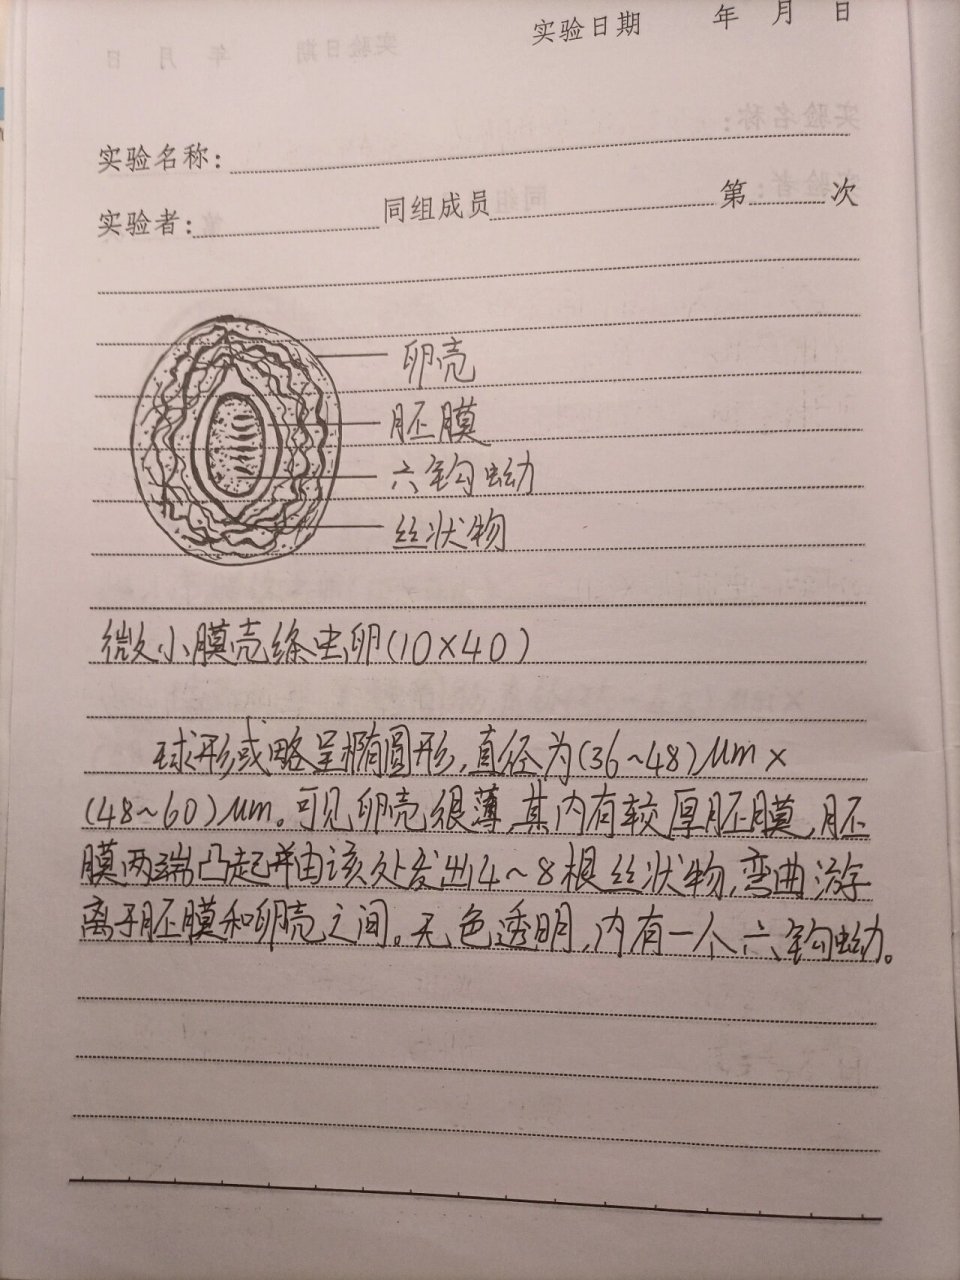 实验日期 年 月 日
实验名称:
实验者: 同组成员 第 次
卵壳
胚膜
六钩蚴
丝状物
微小膜壳绦虫卵(10×40)
球形或略呈椭圆形,直径为(36~48)μm×
(48~60)μm。可见卵壳很薄,其内有较厚胚膜,胚
膜两端凸起并由该处发出4~8根丝状物,弯曲游字
离于胚膜和卵壳之间。无色透明,内有一个六钩蚴。